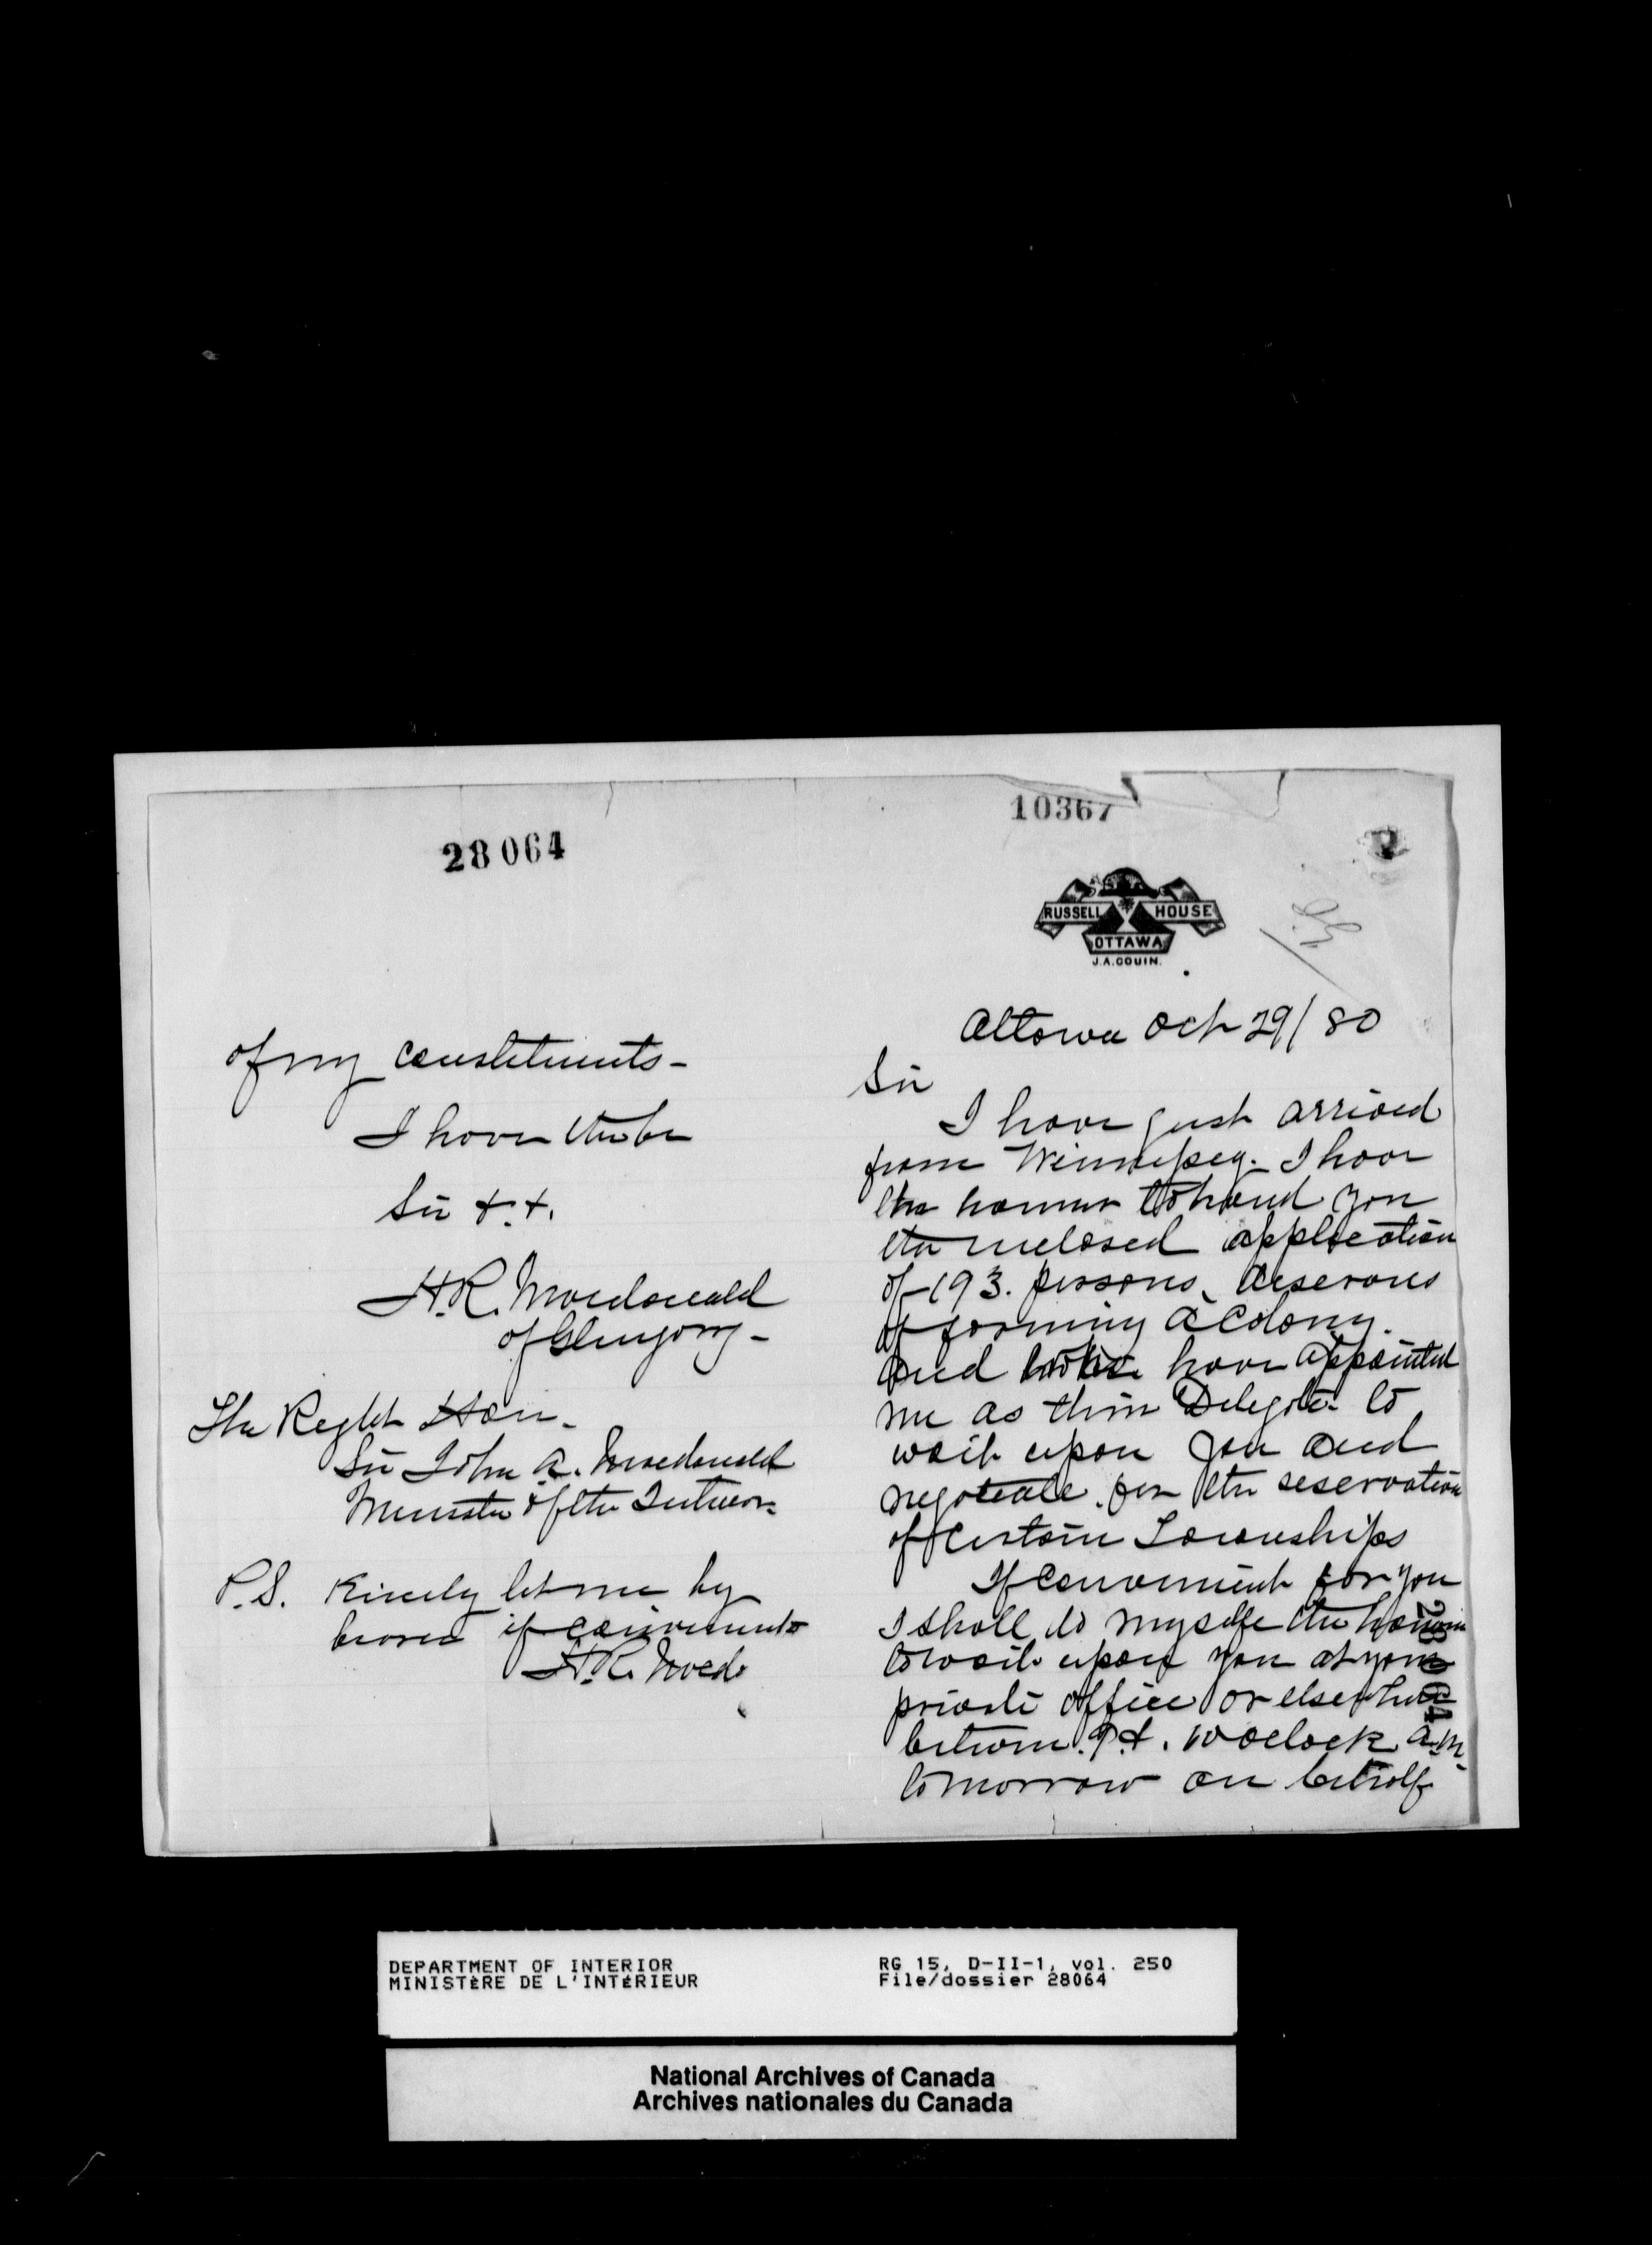 10367
RUSSELL HOUSE
OTTAWA
J.A.GOUIN.
Ottawa Oct 29/80
Sir
I have just arrived
from Winnipeg. I have
the honour to hand you
the inclosed application
of 193. persons, deserous
of forming a Colony.
and have appointed
me as their Delegate to
wait upon you and
negotiate for the reservation
of Certain Townships
If convenient for you
I shall do myselfe the honour
to wait upon you at your
private office or elsewhere
between 9 & 10 oclock a.m.
tomorrow on behalf
28064
28064
of my constituents-
I have the
Sir &.&.
H.R. Macdonald
of Glengarry-
The Right Hon-
Sir John A. Macdonald
Minister of the Interior
P.S. Kindly let me by
bearer if convenient
H.R. Macd
DEPARTMENT OF INTERIOR
MINISTÈRE DE L'INTÉRIEUR
RG 15, D-II-1, vol. 250
File/dossier 28064
National Archives of Canada
Archives nationales du Canada